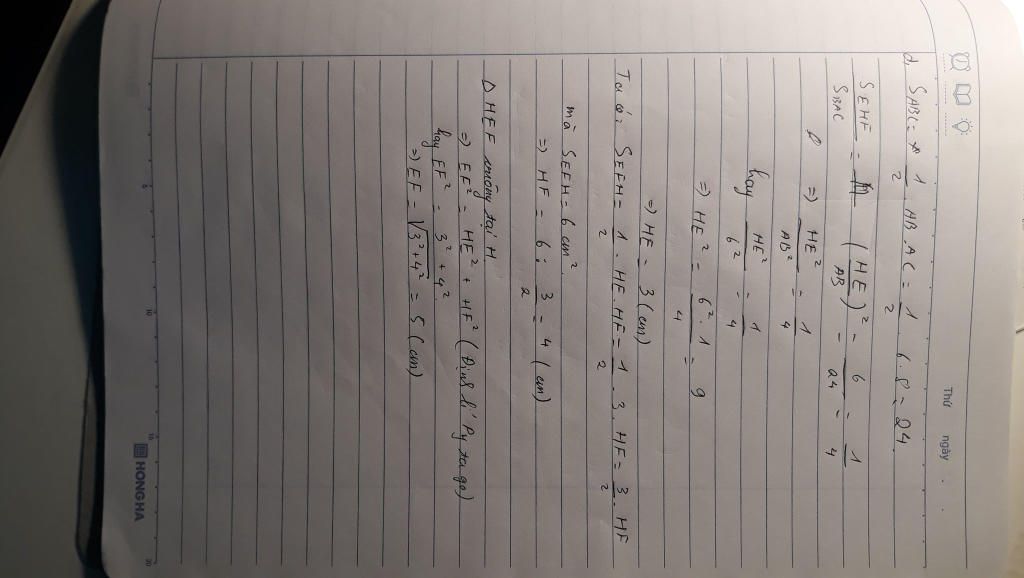 Thứ ngày . .
d, S_ABC = 1/2 . AB . AC = 1/2 . 6 . 8 = 24.
S_EHF/S_BAC = (HE/AB)² = 6/24 = 1/4
=> HE²/AB² = 1/4
hay HE²/6² = 1/4
=> HE² = 6² . 1/4 = 9
=> HE = 3 (cm)
Ta có: S_EFH = 1/2 . HE . HF = 1/2 . 3 . HF = 3/2 . HF
mà S_EFH = 6 cm²
=> HF = 6 : 3/2 = 4 (cm)
Δ HEF vuông tại H
=> EF² = HE² + HF² (Định lí Pytago)
hay EF² = 3² + 4²
=> EF = √3² + 4² = 5 (cm)
5 10 15 20
HONG HA